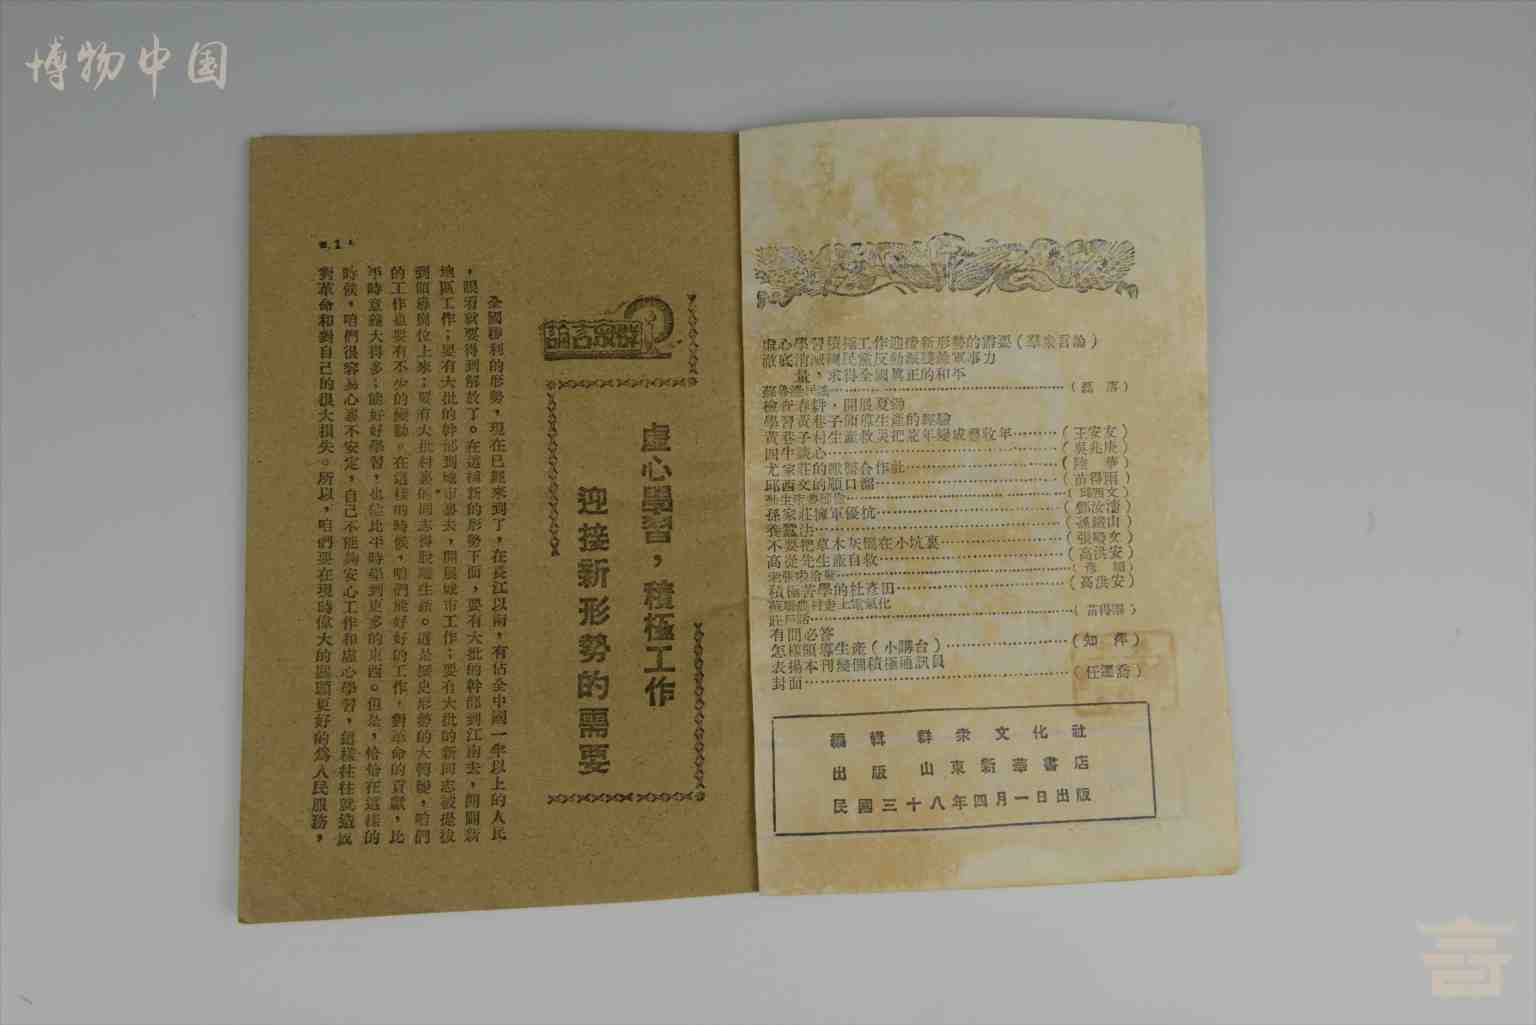 博物中国
虛心學習積極工作迎接新形勢的需要(羣衆言論)
澈底消滅國民黨反動派殘餘軍事力
量,求得全國真正的和平
(磊落)
檢查春耕·開展夏鋤
學習黃巷子領導生產的經驗
黃巷子村生產救災把荒年變成豐收年………(王安友)
四牛談心………(吳兆庚)
尤家莊的醋醬合作社………(陸華)
邱西文的順口溜………(苗得雨)
(邱西文)
孫家莊擁軍優抗………(鄭汝濤)
養蠶法………(孫鏡山)
不要把草木灰攔在小坑裏………(張鳴文)
高從先生產自救………(高洪安)
積極苦學的杜彥田………(高洪安)
蘇聯農村走上電氣化
莊戶話………(苗得雨)
有問必答
怎樣領導生產(小講台)………(知萍)
表揚本刊幾個積極通訊員
封面………(任邁喬)
編輯 群衆文化社
出版 山東新華書店
民國三十八年四月一日出版
群衆言論
虛心學習,積極工作
迎接新形勢的需要
全國勝利的形勢,現在已經來到了,在長江以南,有佔全中國一半以上的人民
,眼看就要得到解放了。在這種新的形勢下面,要有大批的幹部到江南去,開闢新
地區工作;要有大批的幹部到城市裏去,開展城市工作;要有大批的新同志被提拔
到領導崗位上來;要有大批村裏的同志得脫離生產。這是歷史形勢的大轉變,咱們
的工作也要有不少的變動。在這樣的時候,咱們能好好的工作,對革命的貢獻,比
平時意義大得多;能好好學習,也能比平時學到更多的東西。但是,恰恰在這樣的
時候,咱們很容易心裏不安定,自己不能夠安心工作和虛心學習,這樣往往就造成
對革命和對自己的很大損失。所以,咱們要在現時偉大的局面更好的爲人民服務,
1